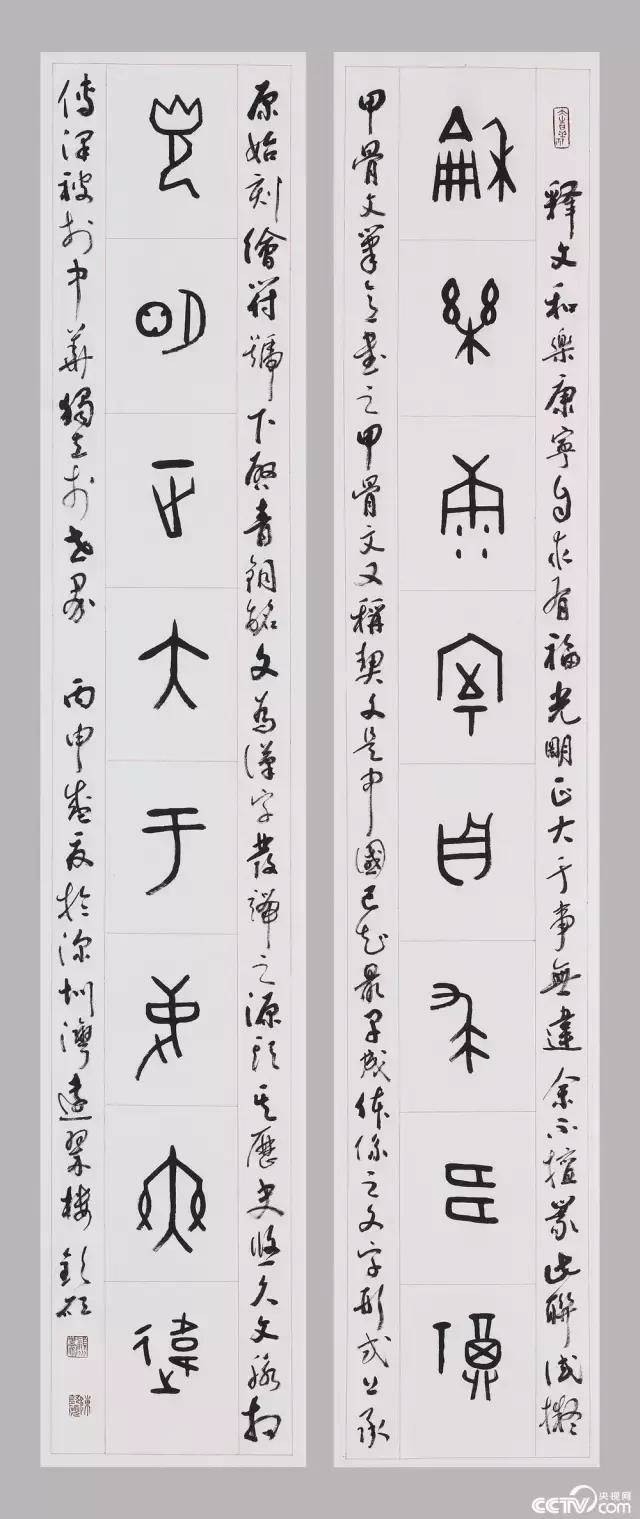 釋文和樂康寧自求有福光明正大于事無違余不擅篆此聯試擬
龢樂康寧自求有福
甲骨文筆意書之甲骨文又稱契文是中國已知最早成體係之文字形式上承
原始刻繪符號下啟青銅銘文為漢字發端之源頭其歷史悠久文脈相
光明正大于事無違
傳澤被於中華獨立於世界 丙申盛夏於深圳灣遠翠樓
央视网
CCTV.com